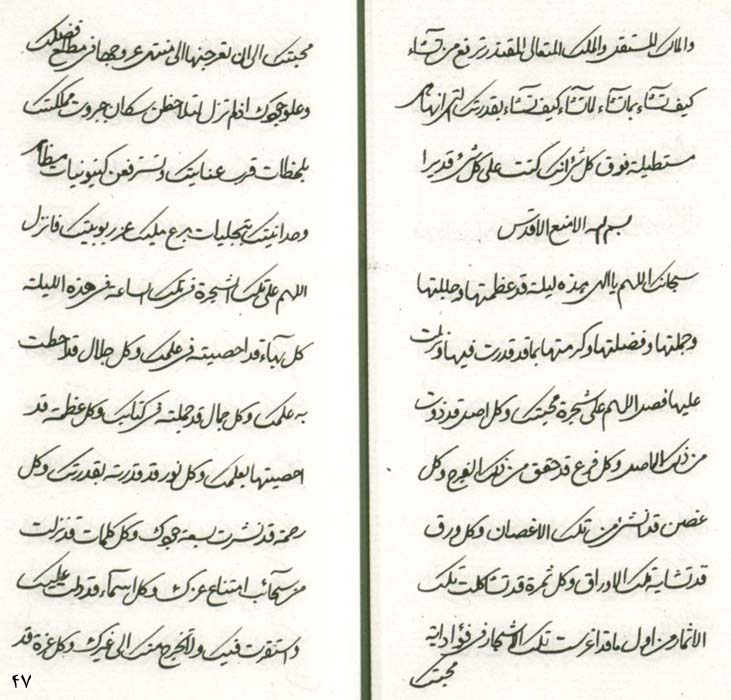 والمالک المستقل والملک المتعالی المقتدر ترفع من تشاء
کیف تشاء بما تشاء لما تشاء کیف تشاء بقدرتک
مستطیلة فوق کل شیء انک کنت علی کل شیء قدیرا
بسم الله الامنع الاقدس
سبحانک اللهم یا الهی هذه لیلة قد عظمتها وجللتها
وجملتها وفضلتها وکرمتها بما قد قدرت فیها ونزلت
علیها فصل اللهم علی شجرة محبتک وکل اصل قد ذوت
من ذلک الاصل وکل فرع قد حقق من ذلک الفرع وکل
غصن قد انشئ من تلک الاغصان وکل ورق
قد تشابه تلک الاوراق وکل ثمرة قد تشاکلت تلک
الاثمار من اول ما قد اغرست تلک الاشجار فی
محبتک
محبتک الی ان تعرجنها الی منتهی عروجها فی مطالع فضلک
وعلو جودک اذ لم تزل لتلاحظن سکان جبروت مملکتک
بلحظات قرب عنایتک ولترفعن کینونیات مظاهر
وحدانیتک بتجلیات ملیک عز ربوبیتک فانزل
اللهم علی تلک الشجرة فی تلک الساعة فی هذه اللیلة
کل بهاء قد احصیته فی علمک وکل جلال قد احطت
به علمک وکل جمال قد جملته فی کتابک وکل عظمة قد
احصیتها بعلمک وکل نور قد قدرته بقدرتک وکل
رحمة قد نشرت بسعة جودک وکل کلمات قد نزلت
من سحائب امتناع عزک وکل اسماء قد دلت علیک
واستقرت فیک ولا تخرج منک الی غیرک وکل عزة قد
۴۷